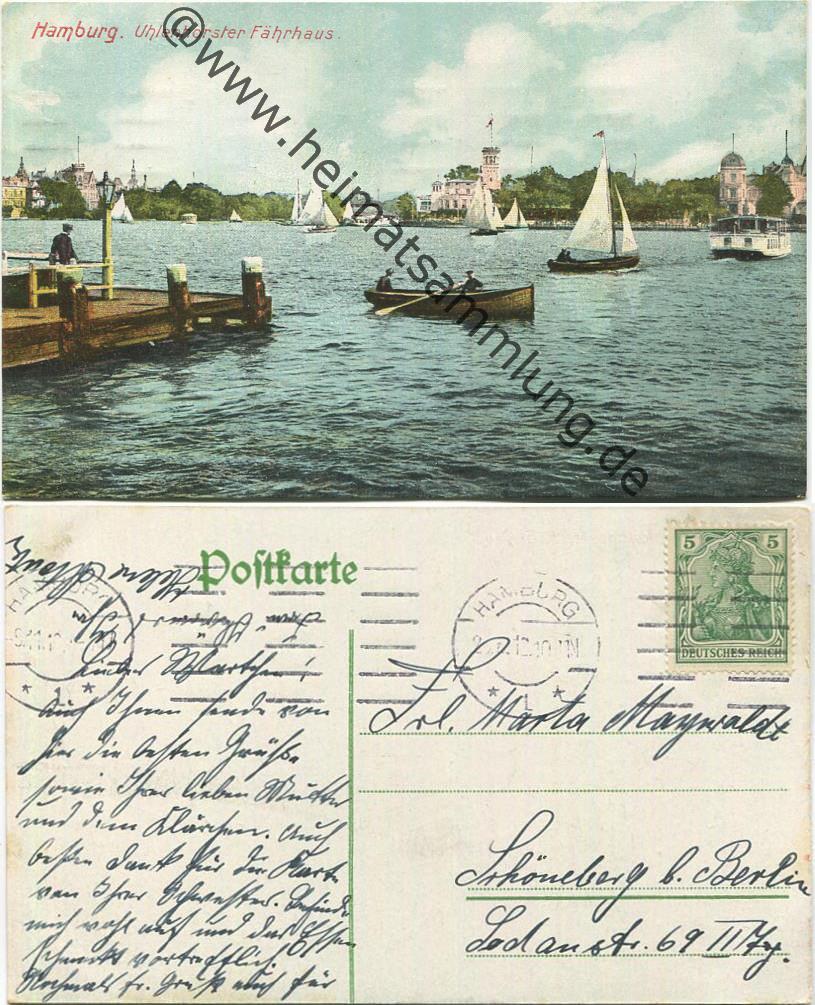 Hamburg. Uhlenhorster Fährhaus.
@www.heimatsammlung.de
Postkarte
HAMBURG
HAMBURG
* 1 *
* 1 *
5 5
DEUTSCHES REICH
Liebes Martchen!
Auch Ihnen sende von
hier die besten Grüße
sowie Ihrer lieben Mutter
und dem Klärchen. Auch
besten Dank für die Karte
von Ihrer Schwester. Befinde
mich wohl auf und das Essen
schmeckt vortrefflich.
Nochmals fr. Gruß auch für
Frl. Marta Maywaldt
Schöneberg b. Berlin
Sedanstr. 69 III